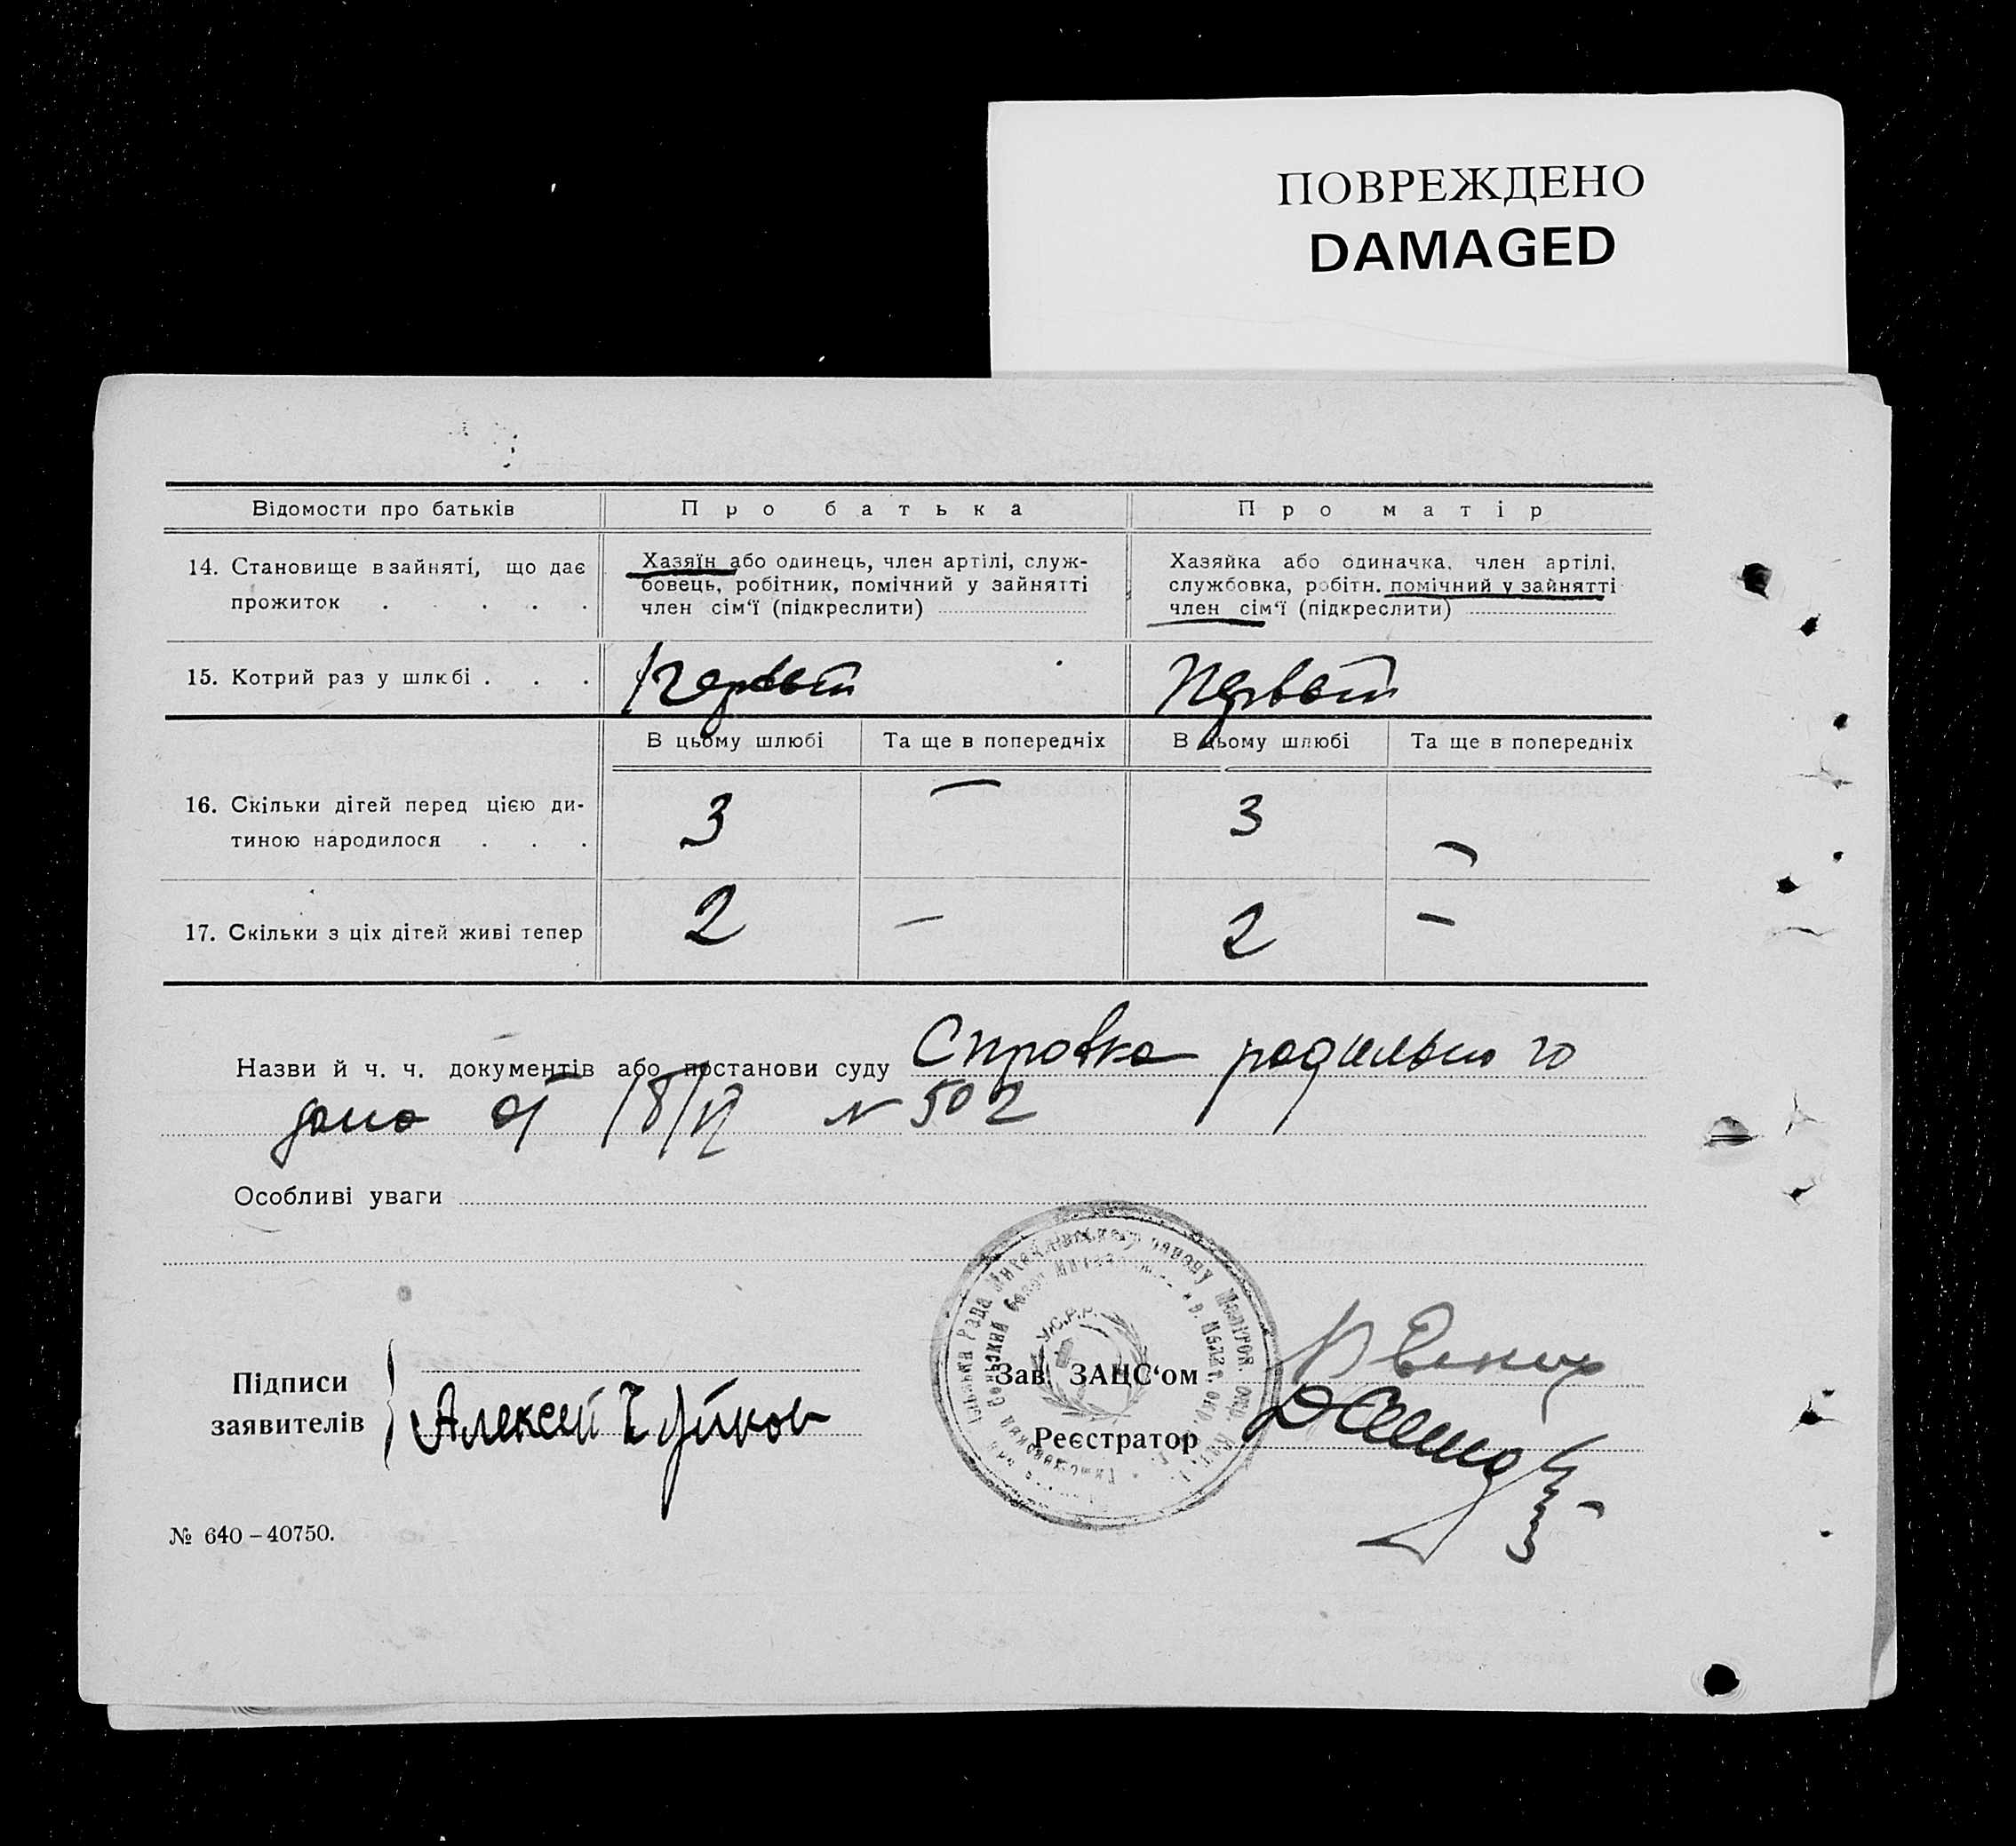 ПОВРЕЖДЕНО
DAMAGED
Відомости про батьків
Про батька
Про матір
14. Становище в зайняті, що дає
прожиток . . . .
Хазяїн або одинець, член артілі, служ-
бовець, робітник, помічний у зайнятті
член сім'ї (підкреслити)
Хазяйка або одиначка, член артілі,
службовка, робітн. помічний у зайнятті
член сім'ї (підкреслити)
15. Котрий раз у шлюбі . . .
Первый
Первый
В цьому шлюбі
Та ще в попередніх
В цьому шлюбі
Та ще в попередніх
16. Скільки дітей перед цією ди-
тиною народилося . . .
3
—
3
—
17. Скільки з ціх дітей живі тепер
2
—
2
—
Назви й ч. ч. документів або постанови суду Справка родильного
дома от 18/VI N 502
Особливі уваги
У.С.Р.Р.
Підписи
заявителів
Алексей
Зав. ЗАЦС'ом
Реєстратор
№ 640–40750.